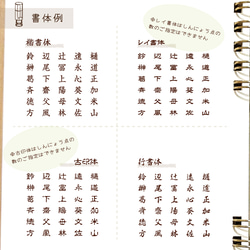 書体例
楷書体
鈴辺辻遠樋
榊尾富永道
葛下上心正
斉齋陽葵加
徳父母文米
方風林佐山
※レイ書体はしんにょう点の
数のご指定はできません
レイ書体
鈴辺辻遠樋
榊尾富永道
葛下上心正
斉齋陽葵加
徳父母文米
方風林佐山
※古印体はしんにょう点の
数のご指定はできません
古印体
鈴辺辻遠樋
榊尾富永道
葛下上心正
斉齋陽葵加
徳父母文米
方風林佐山
行書体
鈴辺辻遠樋
榊尾富永道
葛下上心正
斉齋陽葵加
徳父母文米
方風林佐山